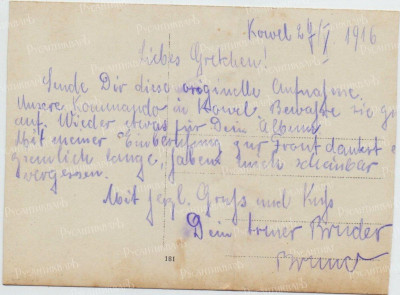 Kowel 24/V 1916
Liebes Gretchen!
Sende Dir diese originelle Aufnahme.
Unsere Kommando in Kowel Bewahre sie gut
auf. Wieder etwas für Dein Album
Mit meiner Einberufung zur Front dauert es
ziemlich lange, haben mich scheinbar
vergessen.
Mit herzl. Gruß und Kuß
Dein treuer Bruder
Bruno
181